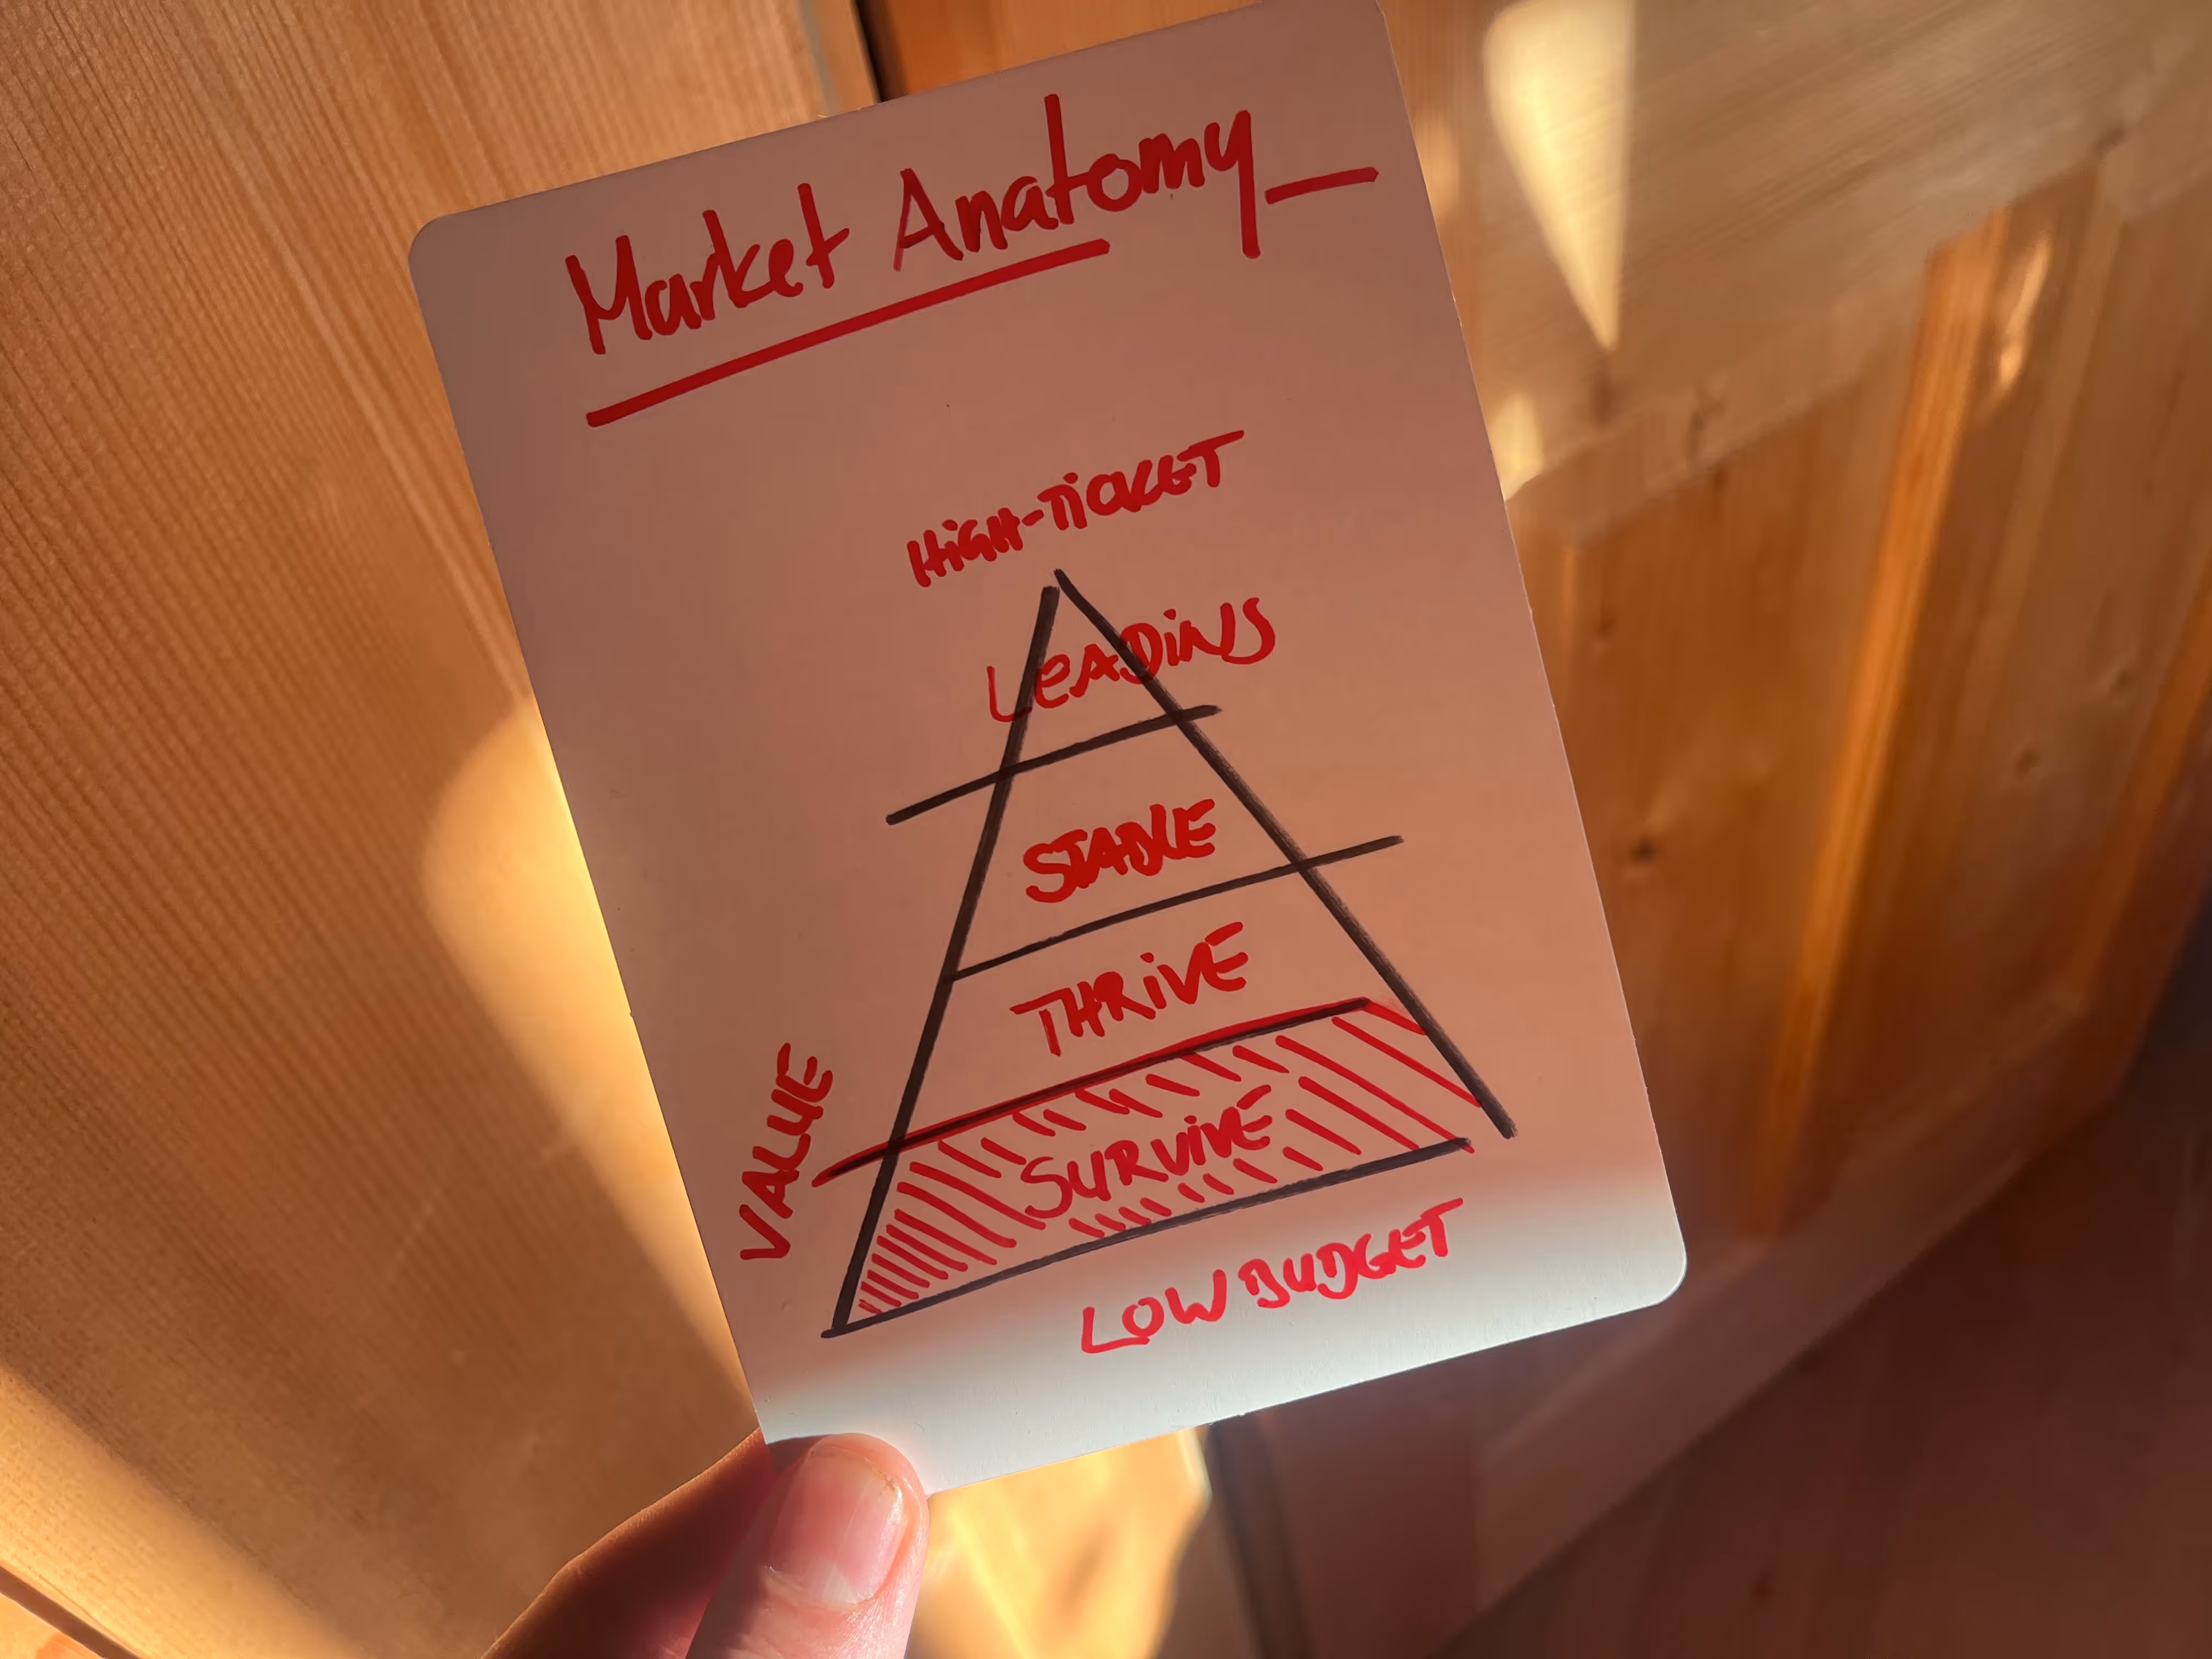 Market Anatomy_
HIGH-TICKET
LEADING
STABLE
THRIVE
SURVIVE
VALUE
LOW BUDGET